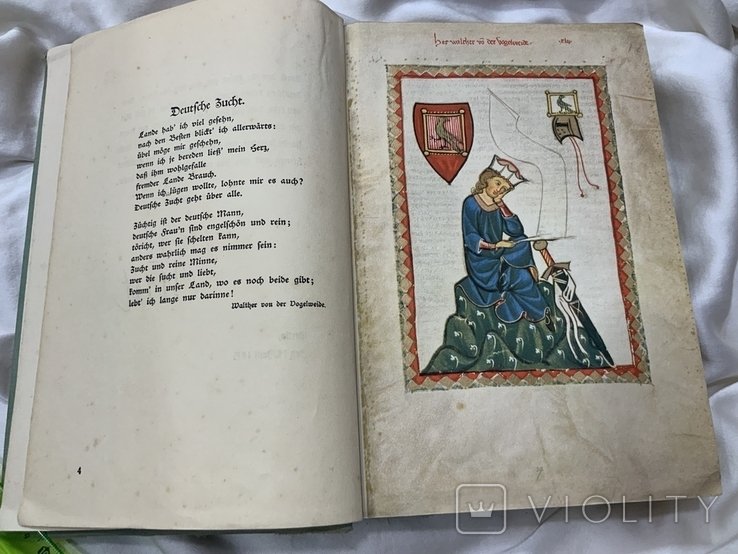 Deutsche Zucht.
Lande hab' ich viel gesehn,
nach den Besten blickt' ich allerwärts:
übel möge mir geschehn,
wenn ich je bereden ließ' mein Herz,
daß ihm wohlgefalle
fremder Lande Brauch.
Wenn ich lügen wollte, lohnte mir es auch?
Deutsche Zucht geht über alle.
Züchtig ist der deutsche Mann,
deutsche Frau'n sind engelschön und rein;
töricht, wer sie schelten kann,
anders wahrlich mag es nimmer sein:
Zucht und reine Minne,
wer die sucht und liebt,
komm' in unser Land, wo es noch beide gibt;
lebt' ich lange nur darinne!
Walther von der Vogelweide.
4
her walther vō der Vogelweide.
VIOLITY